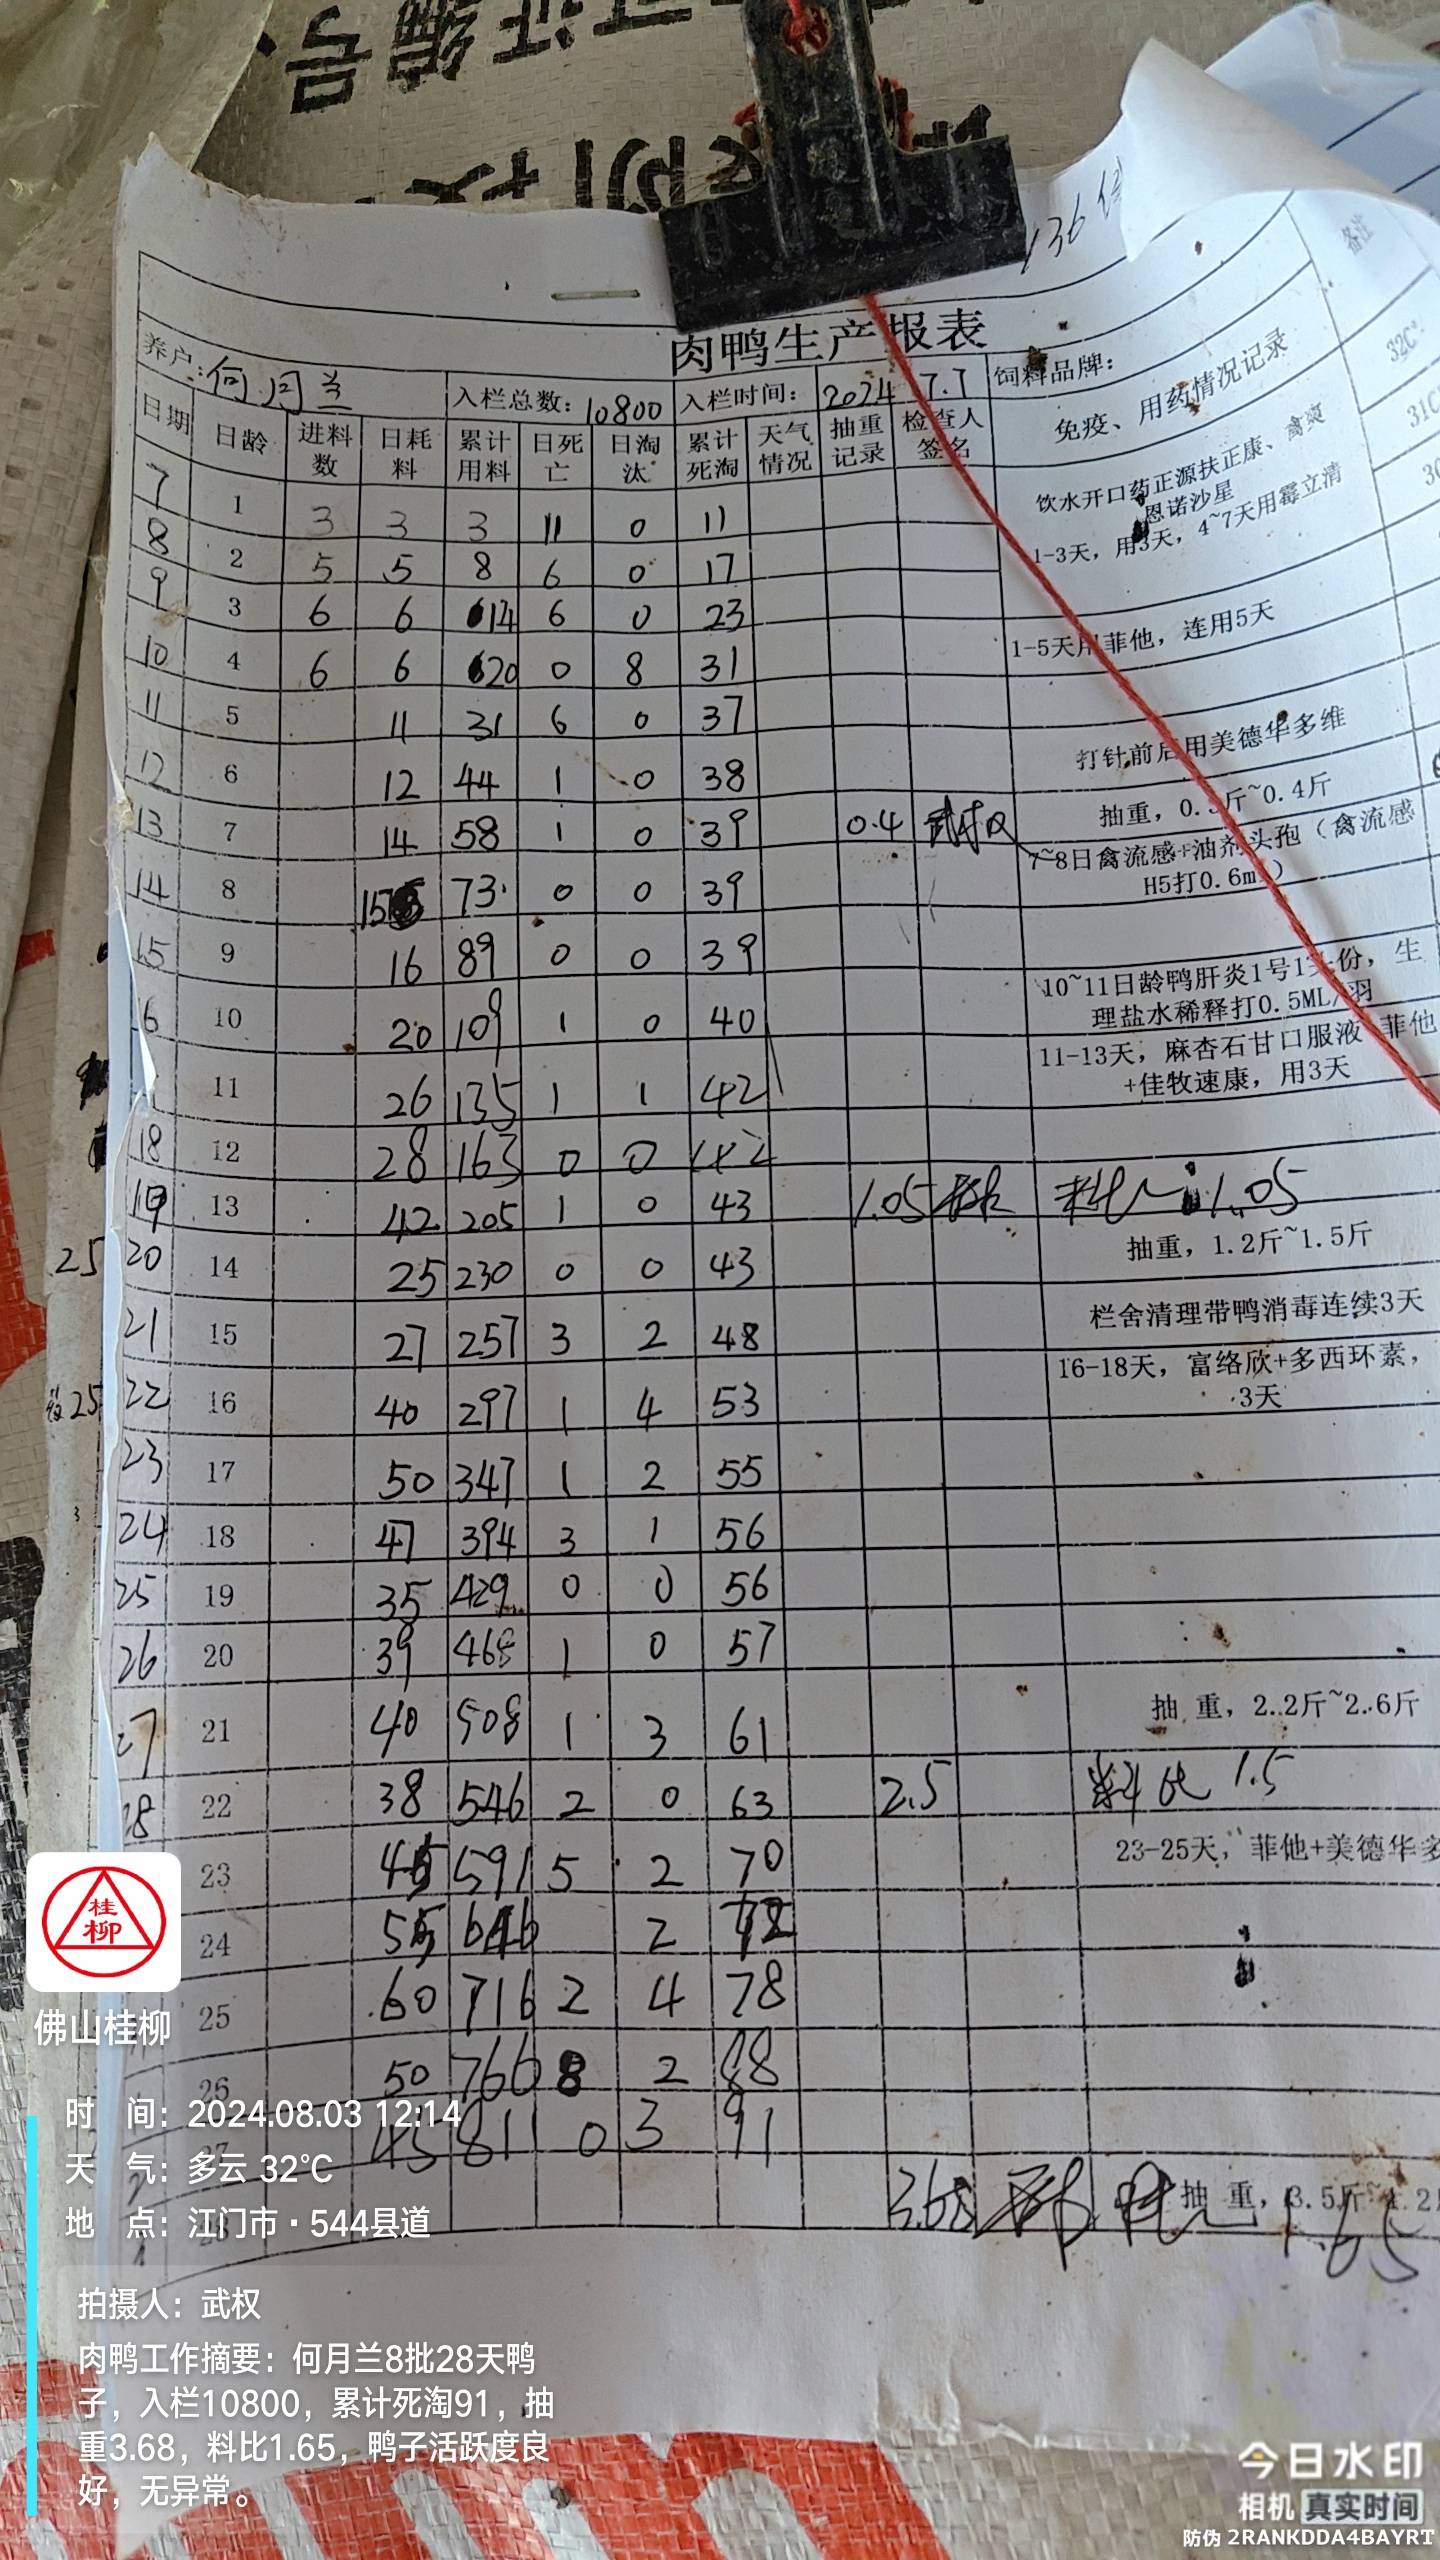 136
备注
肉鸭生产报表
养户: 何月兰 入栏总数: 10800 入栏时间: 2024 7.7 饲料品牌:
日期 日龄 进料数 日耗料 累计用料 日死亡 日淘汰 累计死淘 天气情况 抽重记录 检查人签名 免疫、用药情况记录
32C°
31C
7 1 3 3 3 11 0 11
饮水开口药正源扶正康、禽爽
恩诺沙星
1-3天，用3天，4~7天用霉立清
8 2 5 5 8 6 0 17
9 3 6 6 14 6 0 23
10 4 6 6 20 0 8 31 1-5天用菲他，连用5天
11 5 11 31 6 0 37
12 6 12 44 1 0 38 打针前后用美德华多维
13 7 14 58 1 0 39 0.4 抽重，0.3斤~0.4斤
14 8 15 73 0 0 39
7~8日禽流感+油剂头孢（禽流感
H5打0.6ml）
15 9 16 89 0 0 39
16 10 20 109 1 0 40
10~11日龄鸭肝炎1号1头份，生
理盐水稀释打0.5ML/羽
11 26 135 1 1 42
11-13天，麻杏石甘口服液 菲他
+佳牧速康，用3天
18 12 28 163 0 0 42
19 13 42 205 1 0 43 1.05 料比 1.05
25 20 14 25 230 0 0 43 抽重，1.2斤~1.5斤
21 15 27 257 3 2 48 栏舍清理带鸭消毒连续3天
25 22 16 40 297 1 4 53
16-18天，富络欣+多西环素，
3天
23 17 50 347 1 2 55
24 18 47 394 3 1 56
25 19 35 429 0 0 56
26 20 39 468 1 0 57
27 21 40 508 1 3 61 抽 重，2.2斤~2.6斤
28 22 38 546 2 0 63 2.5 料比 1.5
23 45 591 5 2 70 23-25天，菲他+美德华多
24 55 646 2 72
25 60 716 2 4 78
26 50 766 8 2 88
27 45 811 0 3 91
28 3.68 料比 1.65 抽 重，3.5斤~4.2
桂
柳
佛山桂柳
时 间：2024.08.03 12:14
天 气：多云 32℃
地 点：江门市·544县道
拍摄人：武权
肉鸭工作摘要：何月兰8批28天鸭
子，入栏10800，累计死淘91，抽
重3.68，料比1.65，鸭子活跃度良
好，无异常。
今日水印
相机 真实时间
防伪 2RANKDDA4BAYRT